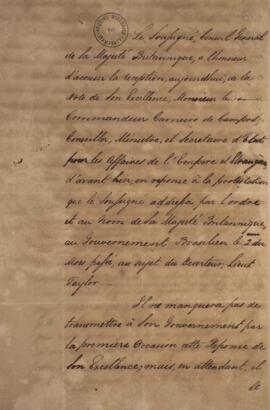 Le Soussigné, Consul Général
de Sa Majesté Britannique, a l'honneur
d'accuser la reception, aujourdhui, de la
Note de Son Excellence, Monsieur le
Commandeur Carneiro de Campos,
Conseiller, Ministre, et Secretaire d'Etat
pour les Affaires de l'Empire, et Etrangères
d'avant hier, en reponse à la protestation
que le Soussigné addressa, par l'ordre
et au Nom de Sa Majesté Britannique,
au Gouvernement Brasilien le 2 du
Mois passé, au sujet du Deserteur, Lieut
Taylor.
Il ne manquera pas de
transmettre à Son Gouvernement par
la première Occasion cette Réponse de
Son Excellence; mais, en attendant, il